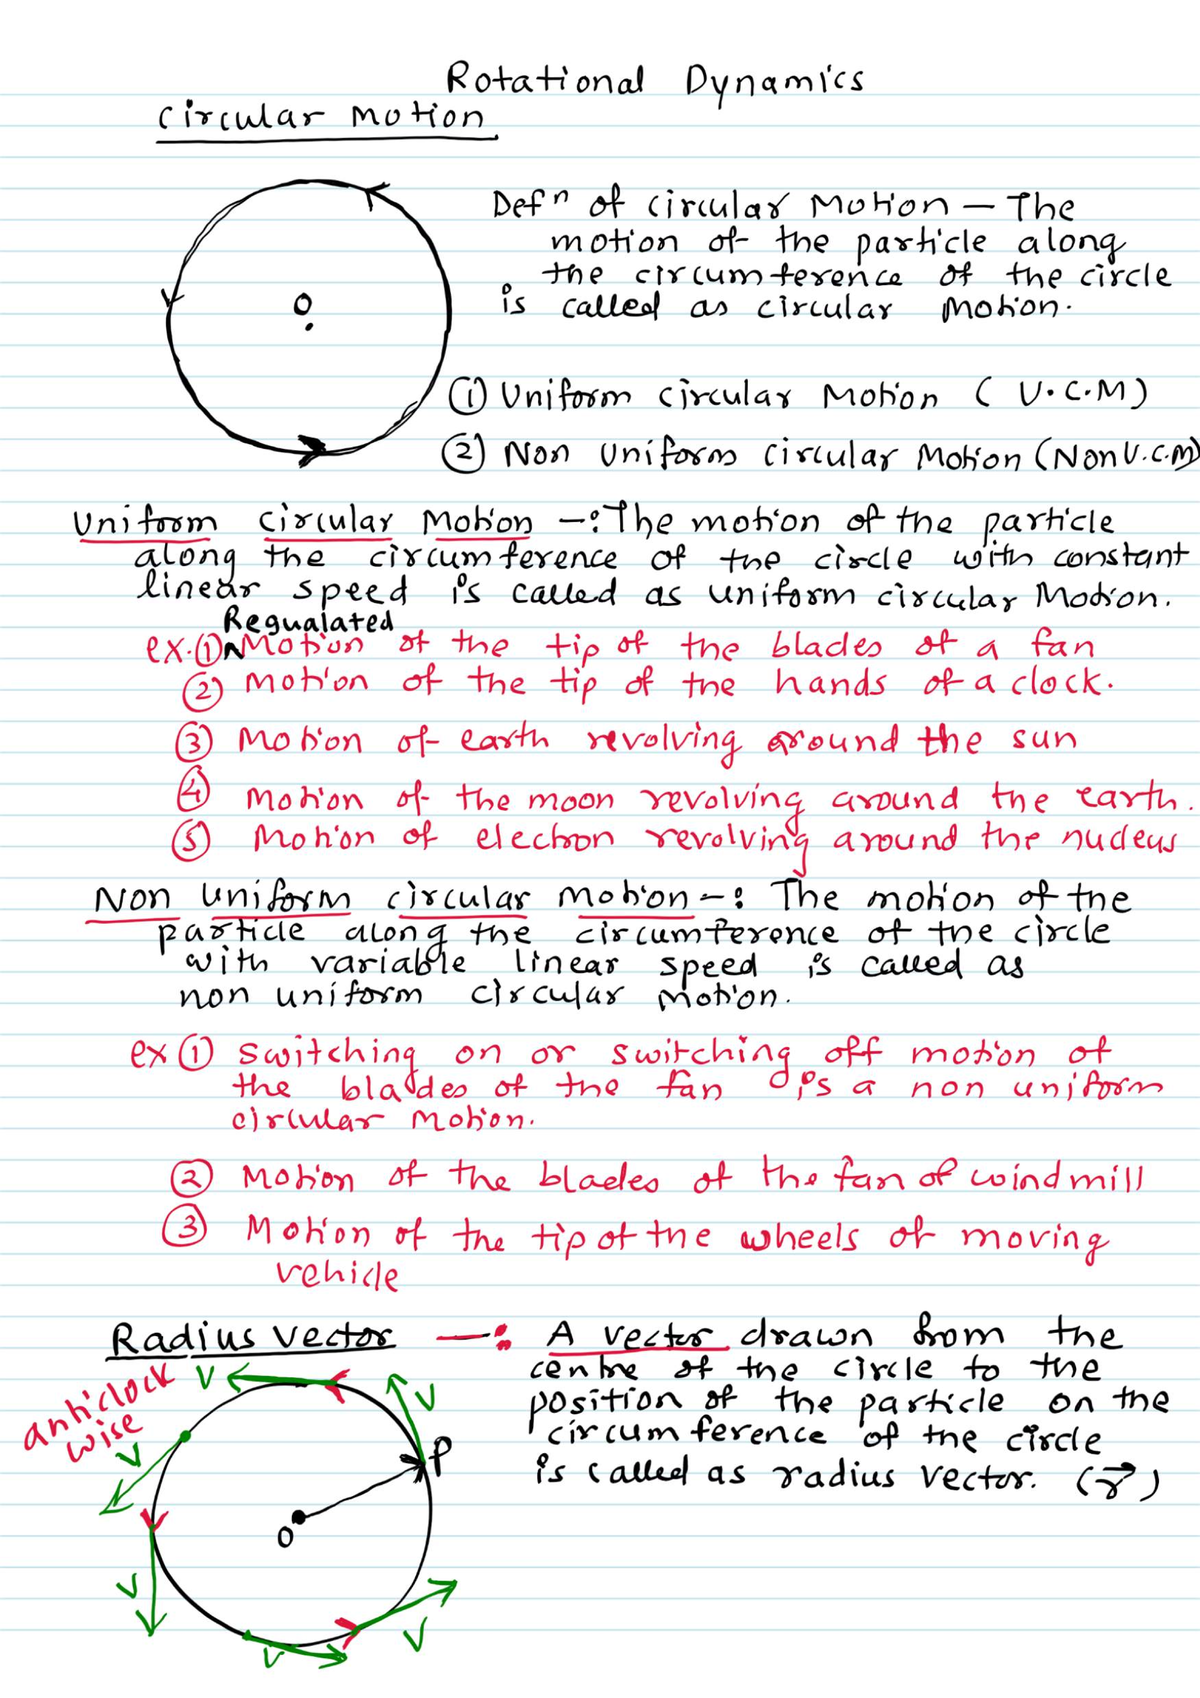 Rotational Dynamics
Circular Motion
O
Defn of circular Motion – The
motion of the particle along
the circumference of the circle
is called as circular Motion.
① Uniform circular Motion ( U.C.M)
② Non Uniform circular Motion (Non U.C.M)
Uniform Circular Motion –: The motion of the particle
along the circumference of the circle with constant
linear speed is called as uniform circular Motion.
Regualated
ex. ① ^ Motion of the tip of the blades of a fan
② Motion of the tip of the hands of a clock.
③ Motion of earth revolving around the sun
④ Motion of the moon revolving around the earth.
⑤ Motion of electron revolving around the nucleus
Non Uniform circular Motion –: The motion of the
particle along the circumference of the circle
with variable linear speed is called as
non uniform circular Motion.
ex ① switching on or switching off motion of
the blades of the fan is a non uniform
circular Motion.
② Motion of the blades of the fan of windmill
③ Motion of the tip of the wheels of moving
vehicle
Radius vector –: A vector drawn from the
centre of the circle to the
position of the particle on the
circumference of the circle
is called as radius vector. (r⃗)
anticlock
wise
V
V
V
P
O
V
V
V